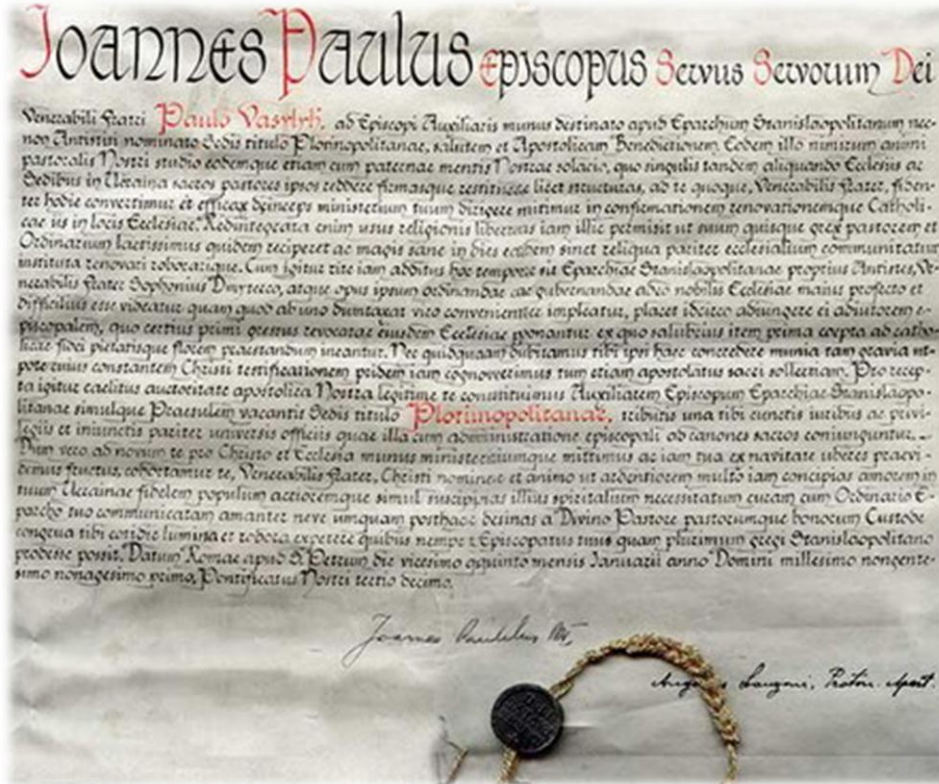 Joannes Paulus Episcopus Servus Servorum Dei
Venerabili Fratri Paulo Vasylyk, ad Episcopi Auxiliaris munus destinato apud Eparchiam Stanislaopolitanam nec-
non Antistiti nominato Sedis titulo Plorinopolitanae, salutem et Apostolicam Benedictionem. Eodem illo nimirum animi
pastoralis Nostri studio eodemque etiam cum paternae mentis Nostrae solacio, quo singulis tandem aliquando Ecclesiis ac
Sedibus in Ucraina sacros pastores ipsos reddere firmasque restituere licet structuras, ad te quoque, Venerabilis Frater, fiden-
ter hodie convertimur et efficax deinceps ministerium tuum dirigere nitimur in confirmationem renovationemque Catholi-
cae iis in locis Ecclesiae. Redintegrata enim usus religionis libertas iam illic permisit ut suum quisque grex pastorem et
Ordinarium laetissimus quidem reciperet ac magis sane in dies eadem sinet reliqua pariter ecclesialium communitatum
instituta renovari roborarique. Cum igitur rite iam additus hoc tempore sit Eparchiae Stanislaopolitanae proprius Antistes, Ve-
nerabilis Frater Sophonius Dmyterco, atque opus ipsum ordinandae ac gubernandae adeo nobilis Ecclesiae maius profecto et
difficilius esse videatur quam quod ab uno dumtaxat viro convenienter impleatur, placet idcirco adiungere ei adiutorem e-
piscopalem, quo certius primi gressus revocatae eiusdem Ecclesiae ponantur ex quo salubrius item prima coepta ad catho-
licae fidei pietatisque florem praestandum ineantur. Nec quidquam dubitamus tibi ipsi haec concedere munia tam gravia ut-
pote cuius constantem Christi testificationem pridem iam cognoverimus tum etiam apostolatus sacri sollertiam. Pro recep-
ta igitur caelitus auctoritate apostolica Nostra legitime te constituimus Auxiliarem Episcopum Eparchiae Stanislaopo-
litanae simulque Praesulem vacantis Sedis titulo Plorinopolitanae, tributis una tibi cunctis iuribus ac privi-
legiis et iniunctis pariter universis officiis quae illa cum administratione episcopali ad canones sacros coniunguntur.
Dum vero ad novum te pro Christo et Ecclesia munus ministeriumque mittimus ac iam tua ex navitate uberes praevi-
demus fructus, cohortamur te, Venerabilis Frater, Christi nomine et animo ut ardentiorem multo iam concipias amorem in
tuum Ucrainae fidelem populum acrioremque simul suscipias illius spiritalium necessitatum curam cum Ordinario E-
parcho tuo communicatam amanter neve umquam posthac desinas a Divino Pastore pastorumque bonorum Custode
congrua tibi cotidie lumina et robora expetere quibus nempe Episcopatus tuus quam plurimum gregi Stanislaopolitano
prodesse possit. Datum Romae apud S. Petrum die vicesimo quinto mensis Ianuarii anno Domini millesimo nongente-
simo nonagesimo primo, Pontificatus Nostri tertio decimo.
Joannes Paulus
Proton. Apost.